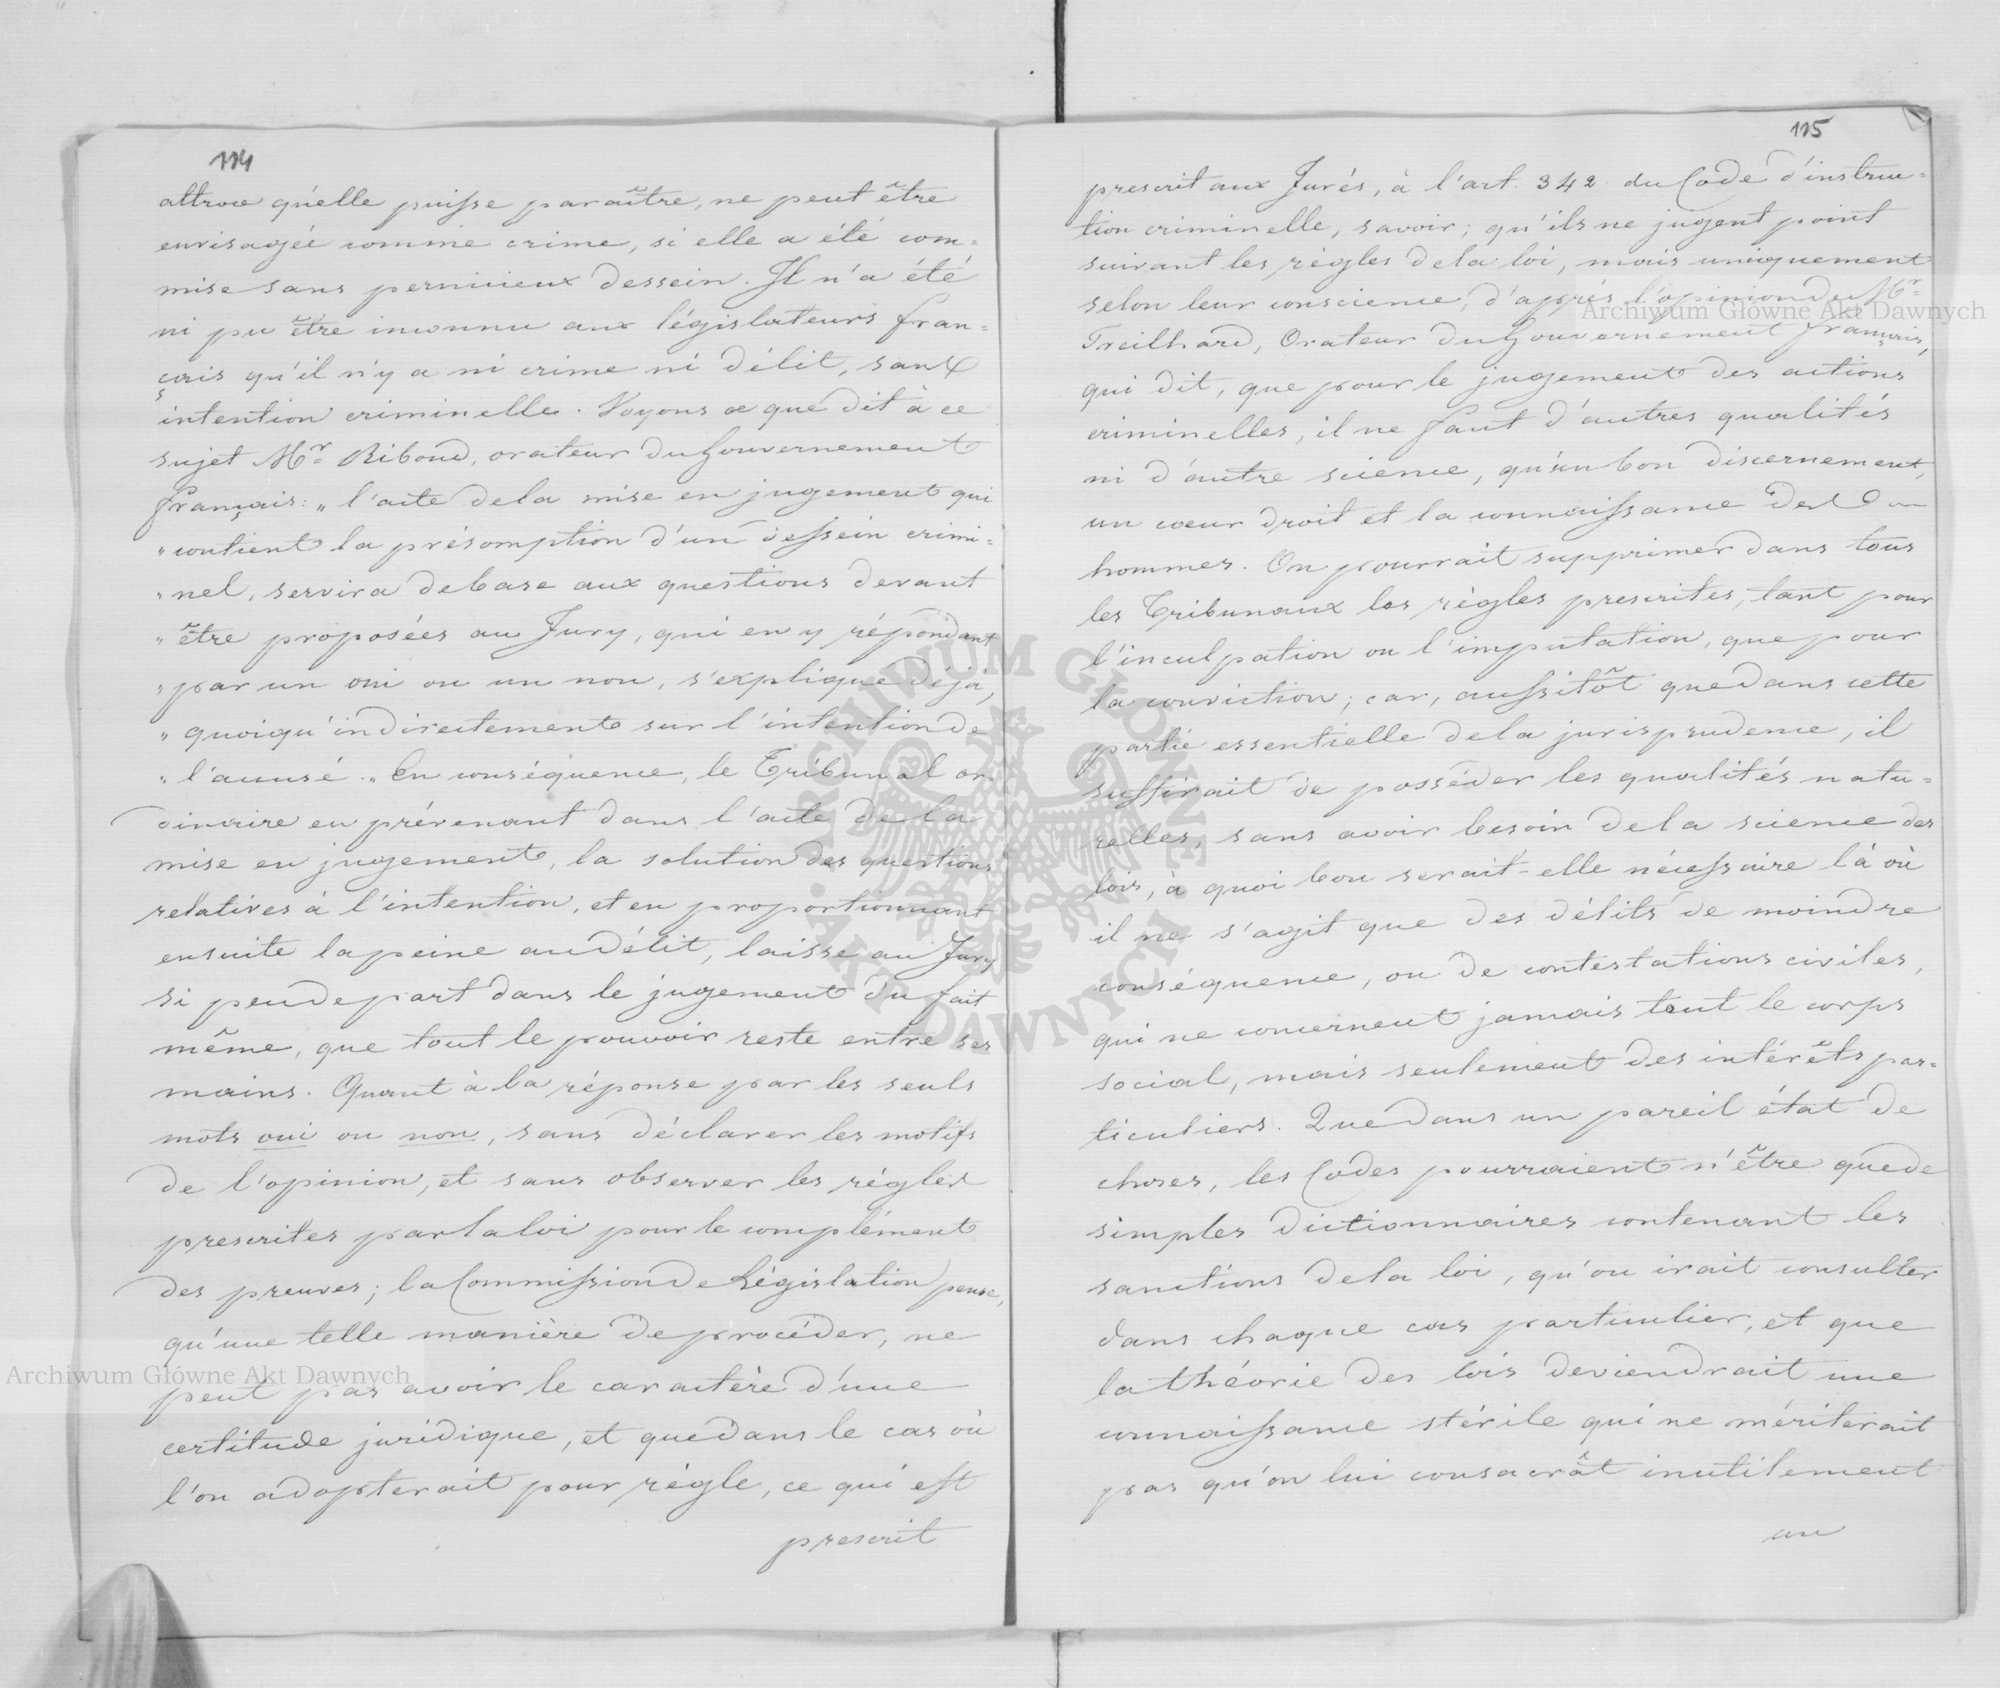 114
attroce qu'elle puisse paraître, ne peut être
envisagée comme crime, si elle a été com=
mise sans pernicieux dessein. Il n'a été
ni pu être inconnu aux législateurs fran=
çais qu'il n'y a ni crime ni délit, sans
intention criminelle. Voyons ce que dit à ce
sujet Mr. Riboud, orateur du Gouvernement
français: „ l'acte de la mise en jugement qui
„ contient la présomption d'un dessein crimi=
„ nel, servira de base aux questions devant
„ être proposées au Jury, qui en y répondant
„ par un oui ou un non, s'explique déjà,
„ quoiqu'indirectement sur l'intention de
„ l'accusé. „ En conséquence, le Tribunal or=
dinaire en prévenant dans l'acte de la
mise en jugement, la solution des questions
relatives à l'intention, et en proportionnant
ensuite la peine au délit, laisse au Jury
si peu de part dans le jugement du fait
même, que tout le pouvoir reste entre ses
mains. Quant à la réponse par les seuls
mots oui ou non, sans déclarer les motifs
de l'opinion, et sans observer les régles
prescrites par la loi pour le complément
des preuves; la Commission de Législation pense,
qu'une telle manière de procéder, ne
peut pas avoir le caractère d'une
certitude juridique, et que dans le cas où
l'on adopterait pour régle, ce qui est
prescrit
115
prescrit aux Jurés, à l'art. 342 du Code d'instruc=
tion criminelle, savoir; qu'ils ne jugent point
suivant les règles de la loi, mais uniquement
selon leur conscience, d'après l'opinion du Mr.
Treilhard, Orateur du Gouvernement français,
qui dit, que pour le jugement des actions
criminelles, il ne faut d'autres qualités
ni d'autre science, qu'un bon discernement,
un cœur droit et la connaissance des
hommes. On pourrait supprimer dans tous
les Tribunaux les règles prescrites, tant pour
l'inculpation ou l'imputation, que pour
la conviction; car, aussitôt que dans cette
partie essentielle de la jurisprudence, il
suffirait de posséder les qualités natu=
relles, sans avoir besoin de la science des
lois, à quoi bon serait-elle nécessaire là où
il ne s'agit que des délits de moindre
conséquence, ou de contestations civiles,
qui ne concernent jamais tout le corps
social, mais seulement des intérêts par=
ticuliers. Que dans un pareil état de
choses, les Codes pourraient n'être que de
simples dictionnaires contenant les
sanctions de la loi, qu'on irait consulter
dans chaque cas particulier, et que
la théorie des lois deviendrait une
connaissance stérile qui ne mériterait
pas qu'on lui consacrât inutilement
un
Archiwum Główne Akt Dawnych
Archiwum Główne Akt Dawnych
ARCHIWUM GŁÓWNE AKT DAWNYCH